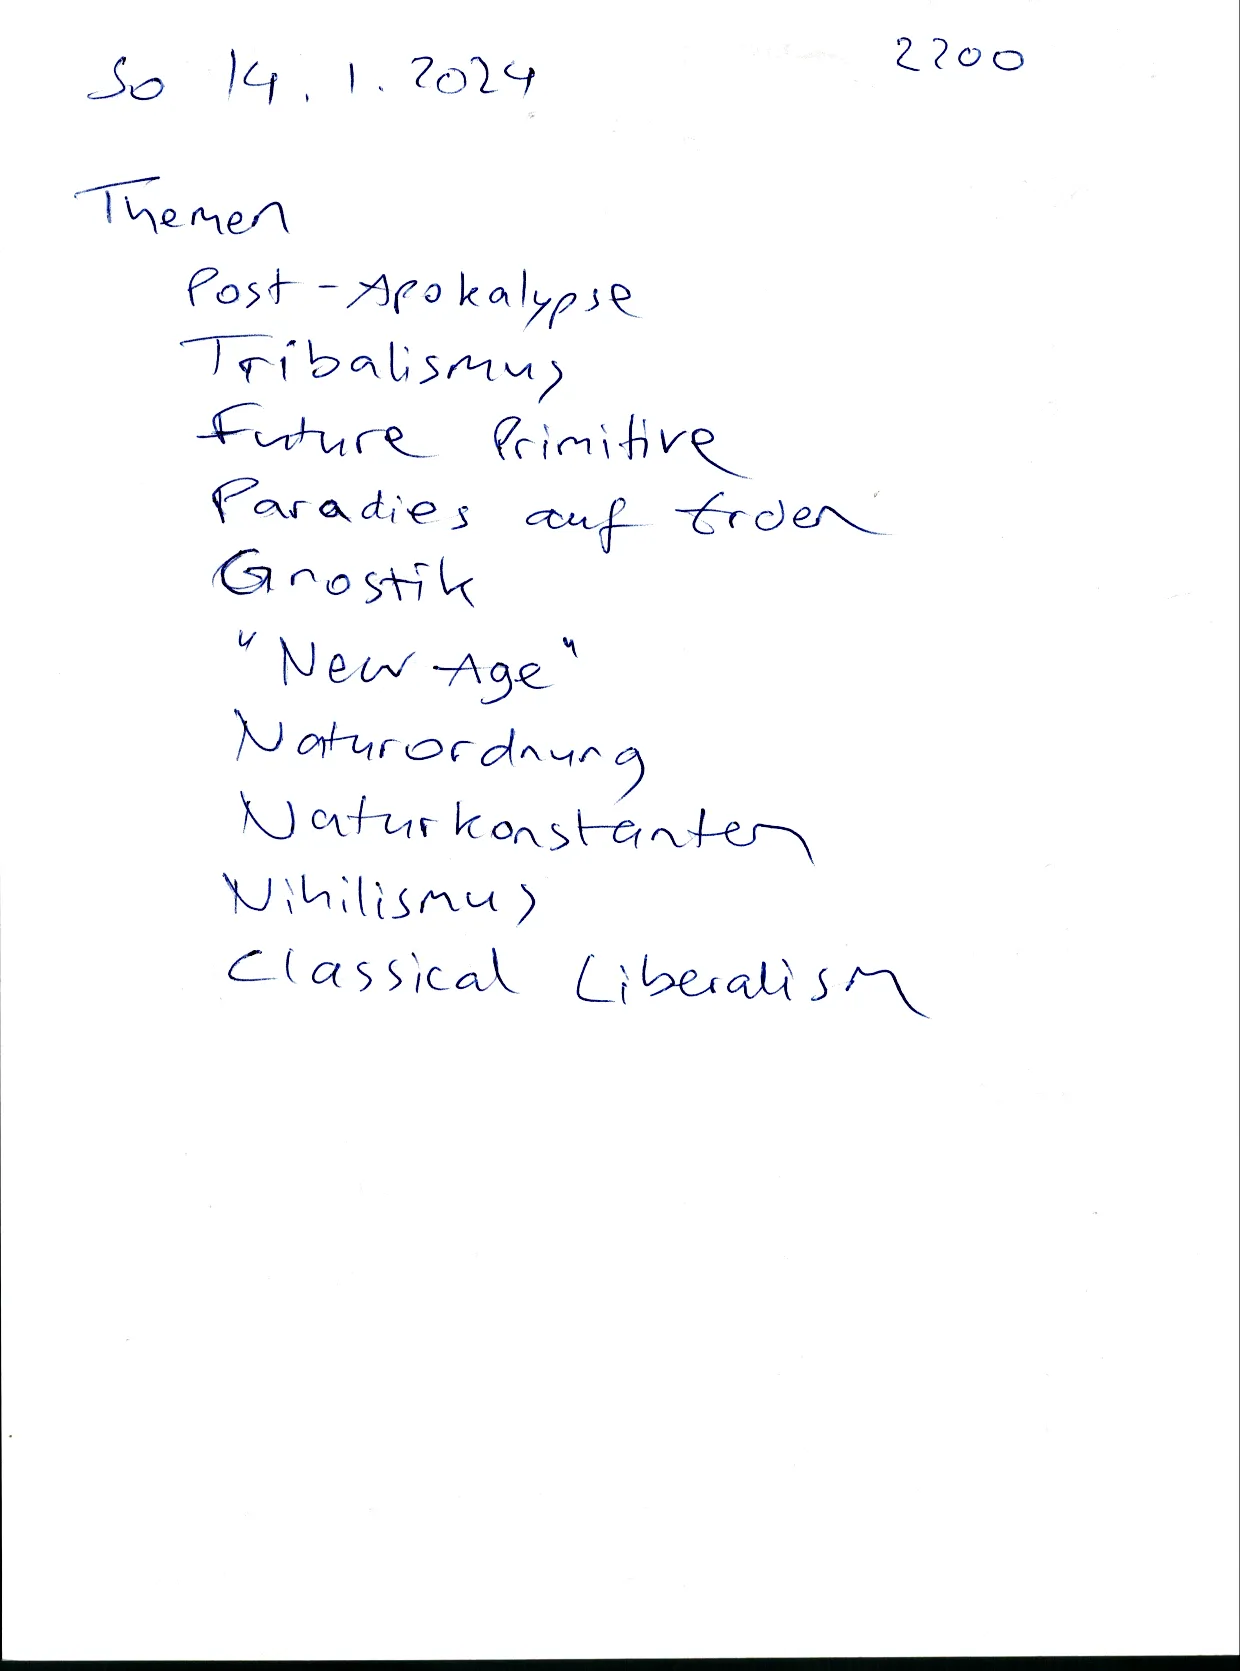 So 14.1.2024 2200
Themen
Post-Apokalypse
Tribalismus
Future Primitive
Paradies auf Erden
Gnostik
"New Age"
Naturordnung
Naturkonstanten
Nihilismus
Classical Liberalism